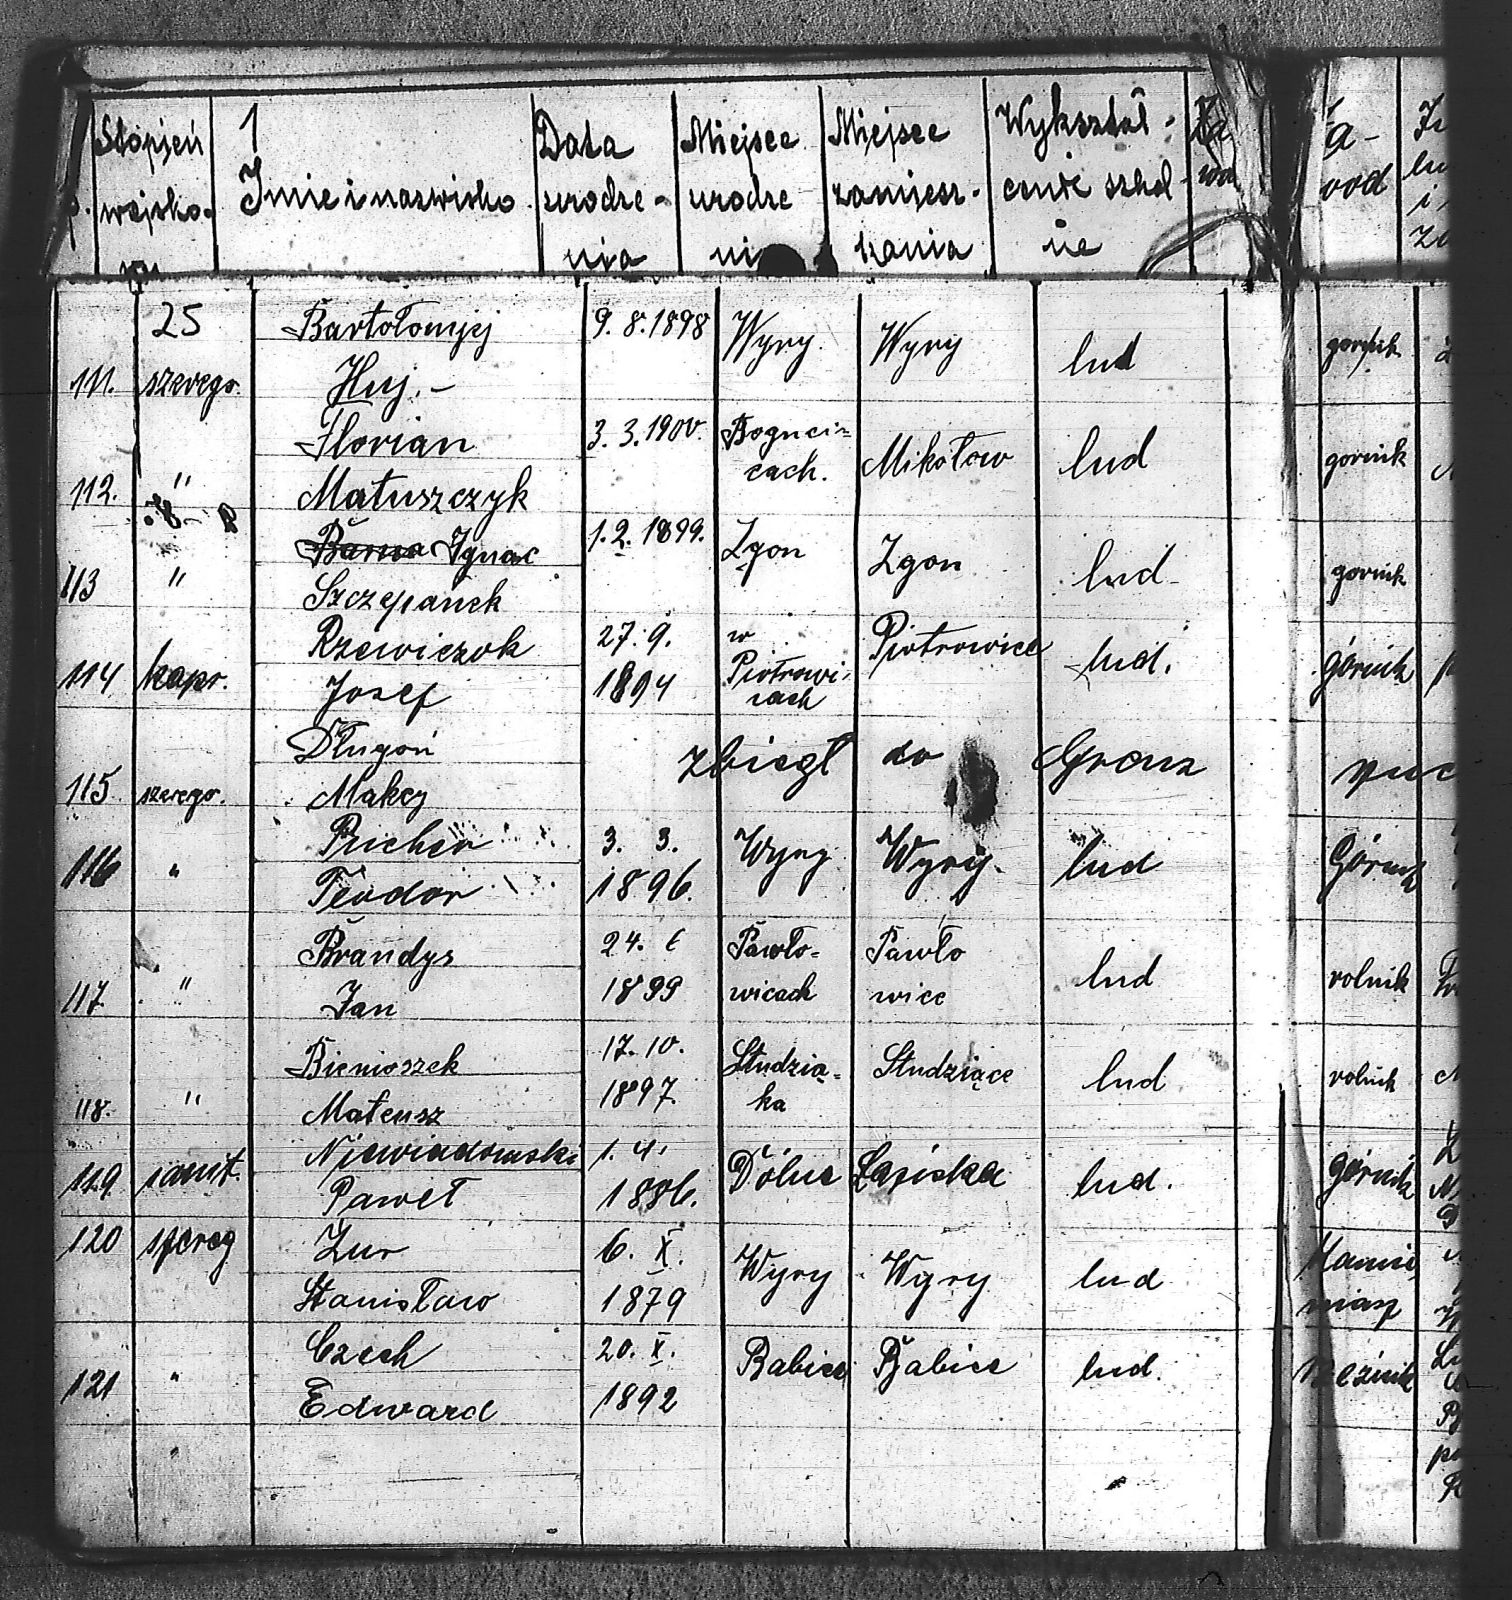 Stopień wojsko-
Imie i nazwisko
Data urodze-nia
Miejsce urodze
Miejsce zamiesz-kania
Wykształ-cenie szkol ne
25
111. szerego. Bartołomjej Huj.- 9.8.1898 Wyry. Wyry lud gornik
112. " Florian Matuszczyk 3.3.1900. Bogucicach. Mikołow lud gornik
113 " Ignac Szczepanek 1.2.1899. Zgon Zgon lud- gornik
114 kapr. Rzewiczok Josef 27.9. 1894 w Piotrowi-cach Piotrowice lud. górnik
115 szerego. Długoń Makcy zbiegł do Grenz
116 " Teodor 3. 3. 1896. Wyry Wyry. lud Górnik
117 " Brandys Jan 24. 6 1899 Pawło-wicach Pawło wice lud rolnik
118. " Bienioszek Mateusz 17.10. 1897. Studzią-ka Studziące lud rolnik
119. sanit. Niewiadomski Paweł 1.4. 1886. Dólne Łaziska lud. górnik
120 szereg Zur Stanisław 6. X. 1879 Wyry Wyry lud
121 " Czech Edward 20. X. 1892 Babice Babice lud.
"